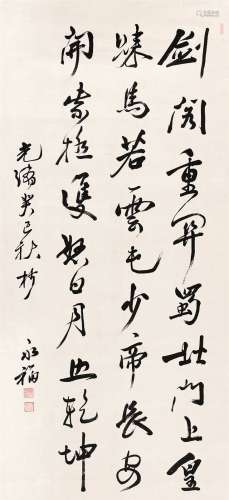 劍閣重關蜀北門上皇
歸馬若雲屯少帝長安
開紫極雙懸日月照乾坤
光緒癸巳秋杪
永福